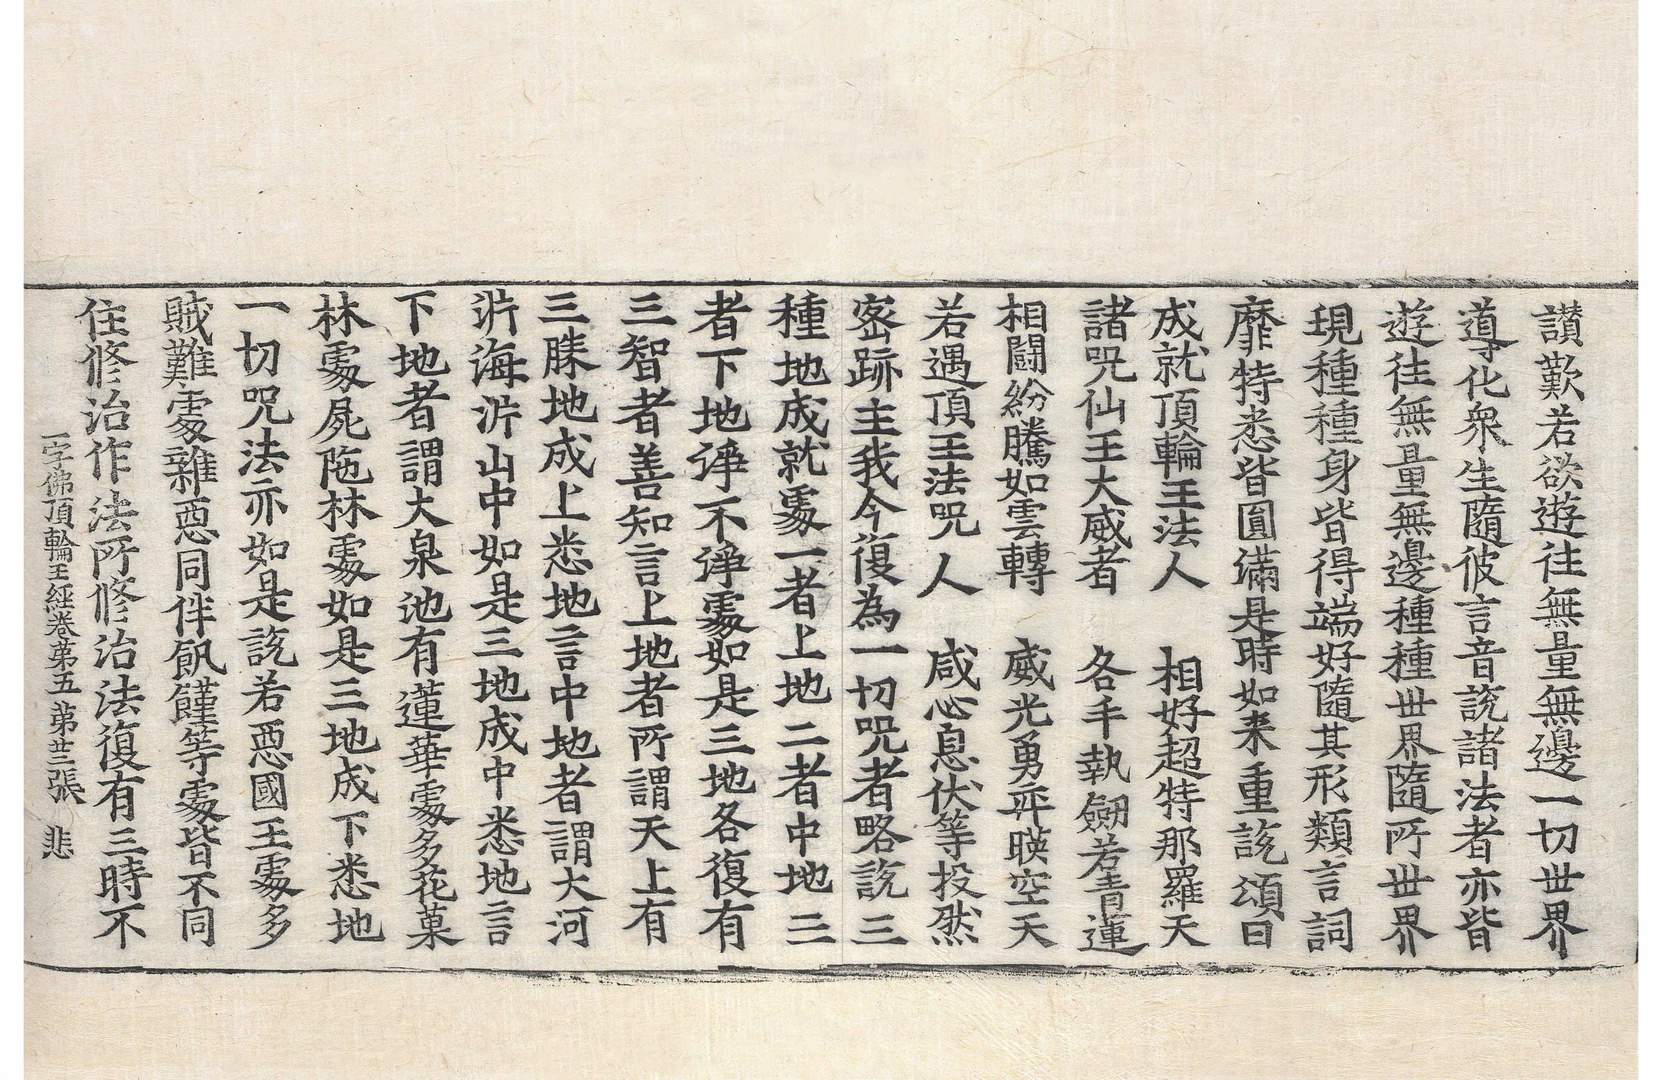 讃歎若欲遊往無量無邊一切世界
導化衆生隨彼言音說諸法者亦皆
遊往無量無邊種種世界隨所世界
現種種身皆得端好隨其形類言詞
靡特悉皆圓滿是時如来重說頌曰
成就頂輪王法人　相好超特那羅天
諸呪仙王大威者　各手執劒若青蓮
相鬪紛騰如雲轉　威光勇弈暎空天
若遇頂王法呪人　咸心息伏等投然
密跡主我今復為一切呪者略說三
種地成就處一者上地二者中地三
者下地諍不諍處如是三地各復有
三智者善知言上地者所謂天上有
三勝地成上悉地言中地者謂大河
泝海泝山中如是三地成中悉地言
下地者謂大泉池有蓮華處多花菓
林處屍陁林處如是三地成下悉地
一切呪法亦如是說若惡國王處多
賊難處雜惡同伴飢饉等處皆不同
住修治作法所修治法復有三時不
一字佛頂輪王經卷第五　第卅三張　悲